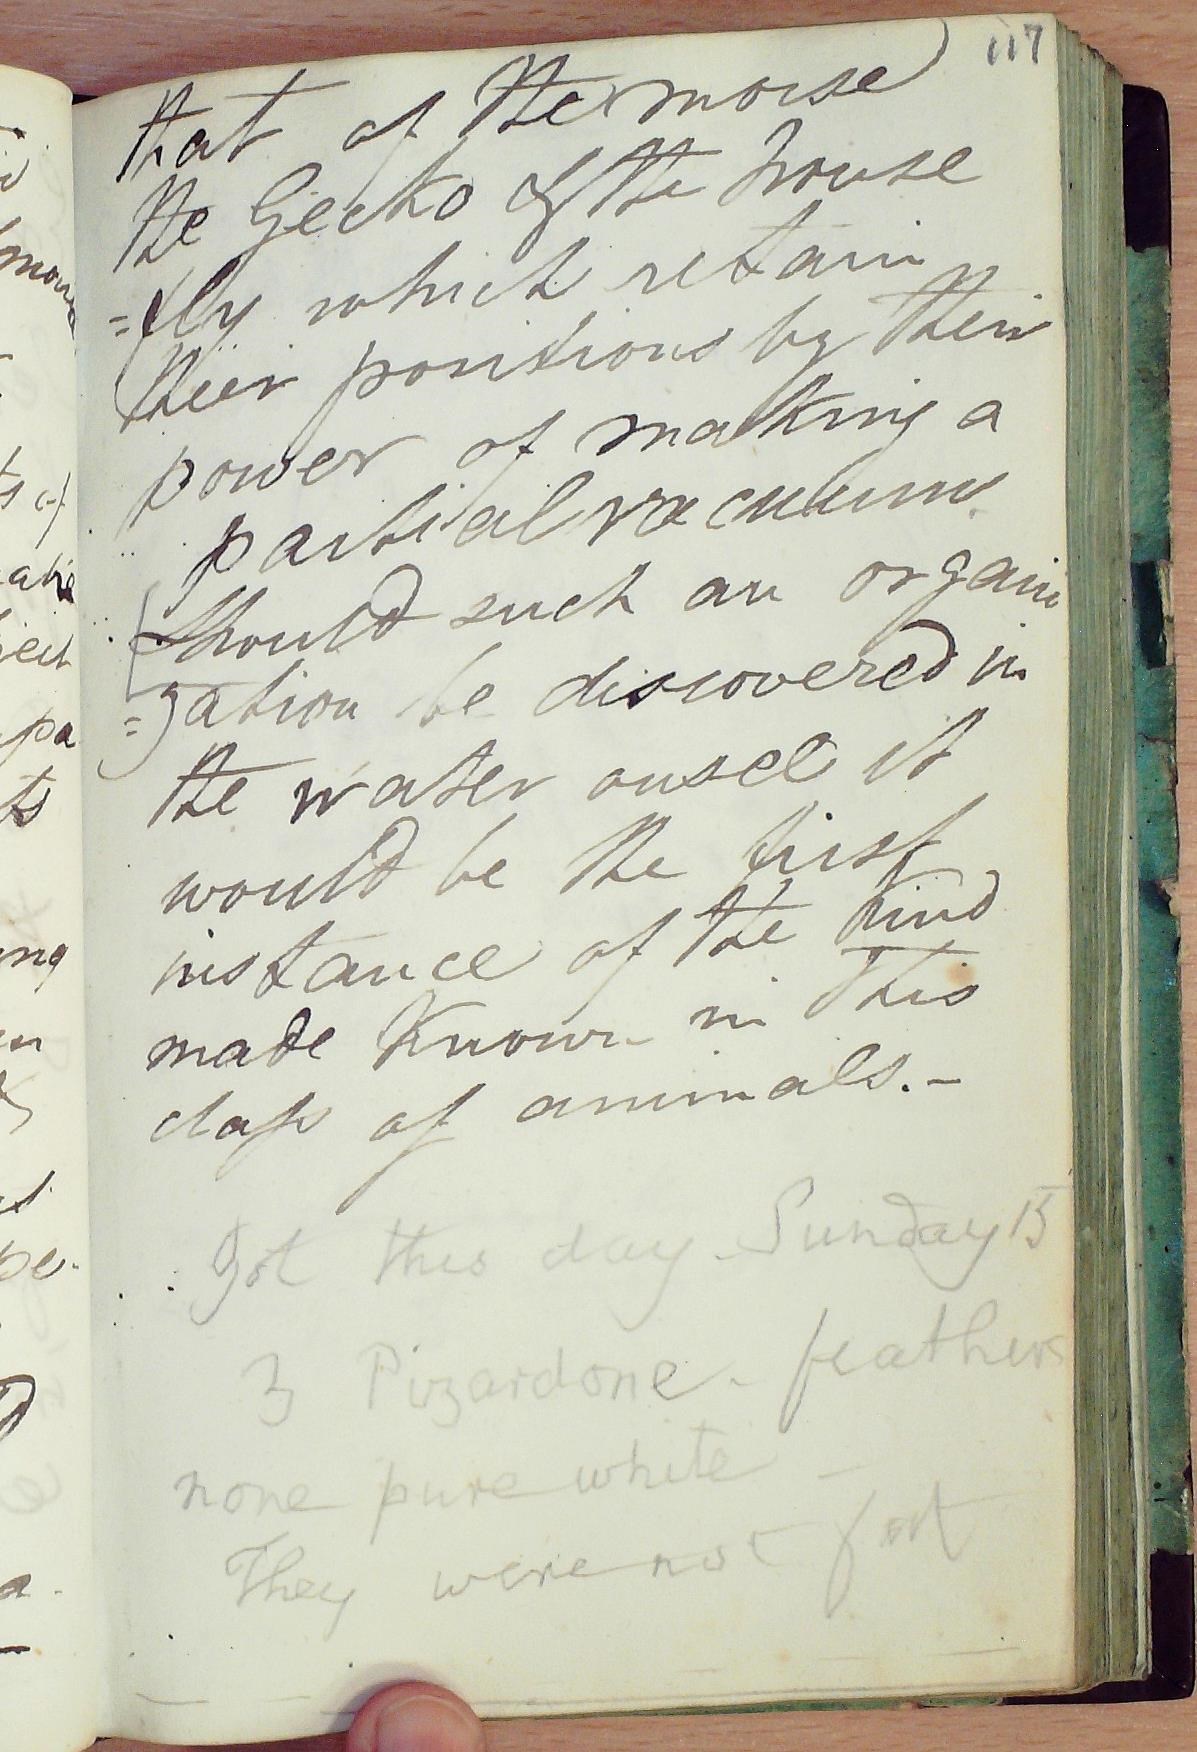 117
that of the morse
the Gecko & the house
=fly which retain
their positions by their
power of making a
partial vacuum.
Should such an organi
=zation be discovered in
the water ousel it
would be the first
instance of the kind
made known in this
class of animals.-
Got this day. Sunday 15
3 Pizardone - feathers
none pure white -
They were not fat